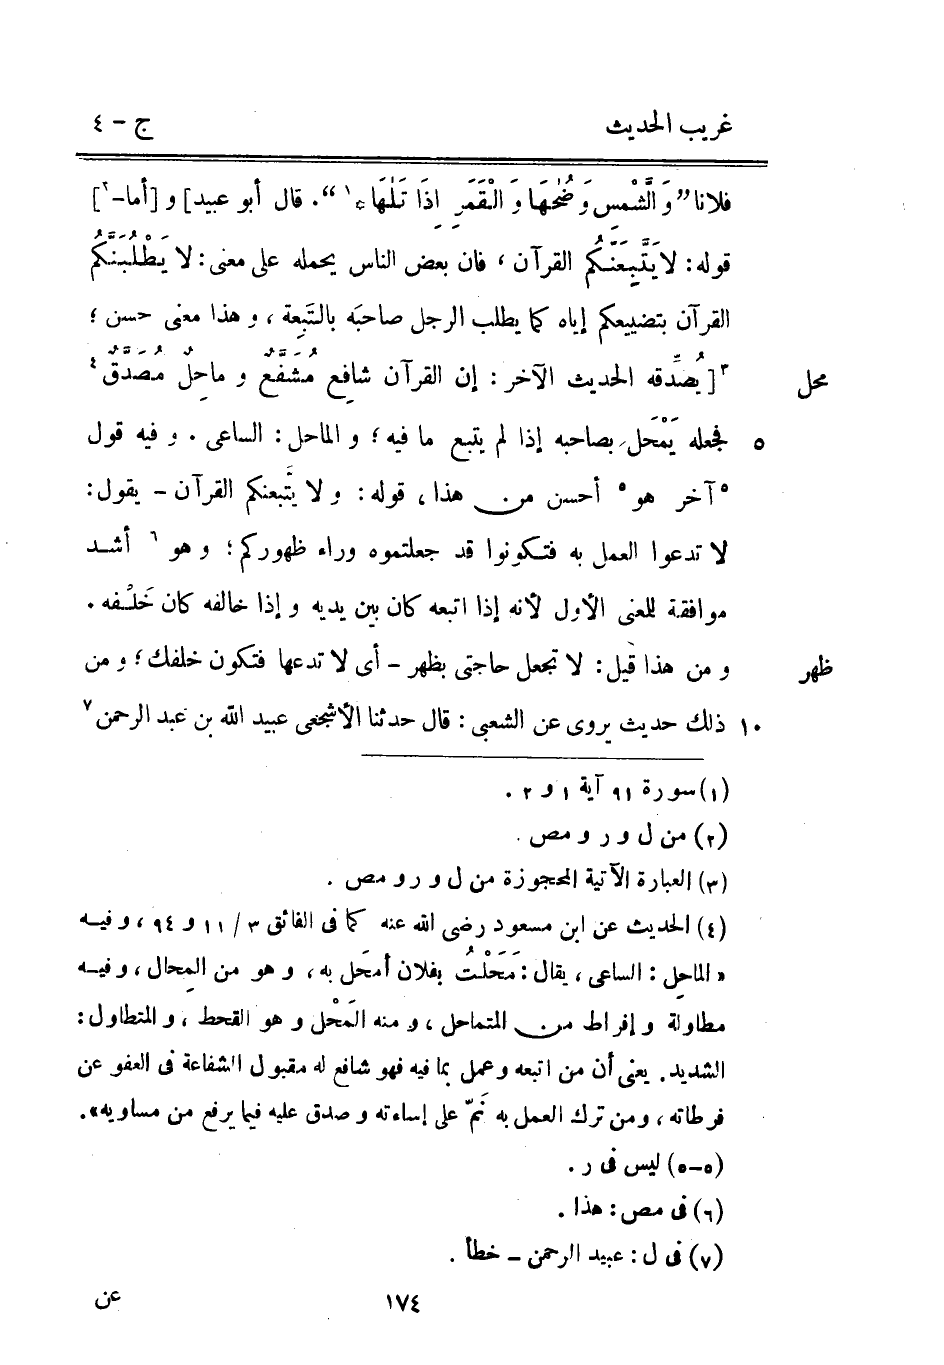 غريب الحديث ج - ٤
فلانا ”وَالشَّمْسِ وَضُحٰهَا وَالْقَمَرِ اِذَا تَلٰهَا ۞ ١“. قال أبو عبيد] و [أما-٢]
قوله: لا يَتَّبِعَنَّكُم القرآن ، فان بعض الناس يحمله على معنى: لا يَطْلُبَنَّكُم
القرآن بتضييعكم إياه كما يطلب الرجل صاحبَه بالتَّبِعة ، و هذا معنى حسن ؛
محل ٣[ يُصَدِّقه الحديث الآخر : إن القرآن شافِعٌ مُشَفَّعٌ و ماحِلٌ مُصَدَّقٌ ٤
٥ فجعله يَمْحَل بصاحبه إذا لم يتبع ما فيه ؛ و الماحل : الساعى . و فيه قول
٥آخر هو٥ أحسن من هذا ، قوله : و لا يتَّبعنكم القرآن - يقول :
لا تدعوا العمل به فتكونوا قد جعلتموه وراء ظهوركم ؛ و هو ٦ أشد
موافقة للعنى الأول لأنه إذا اتبعه كان بين يديه و إذا خالفه كان خَلْفه .
ظهر و من هذا قيل : لا تجعل حاجتى بظهر - أى لا تدعها فتكون خلفك ؛ و من
١٠ ذلك حديث يروى عن الشعبى : قال حدثنا الأشجعى عبيد الله بن عبد الرحمن ٧
(١) سورة ٩١ آية ١ و ٢ .
(٢) من ل و ر و مص .
(٣) العبارة الآتية المحجوزة من ل و ر و مص .
(٤) الحديث عن ابن مسعود رضى الله عنه كما فى الفائق ٣ / ١١ و ٩٤ ، و فيه
« الماحِل : الساعى ، يقال : مَحَلْتُ بفلان أمحَل به ، و هو من المِحال ، و فيه
مطاولة و إفراط من المتماحل ، و منه المَحْل و هو القحط ، و المتطاول :
الشديد . يعنى أن من اتبعه و عمل بما فيه فهو شافع له مقبول الشفاعة فى العفو عن
فرطاته ، و من ترك العمل به نَمّ على إساءته و صدق عليه فيما يرفع من مساويه » .
(٥-٥) ليس فى ر .
(٦) فى مص : هذا .
(٧) فى ل : عبيد الرحمن - خطأ .
١٧٤ عن